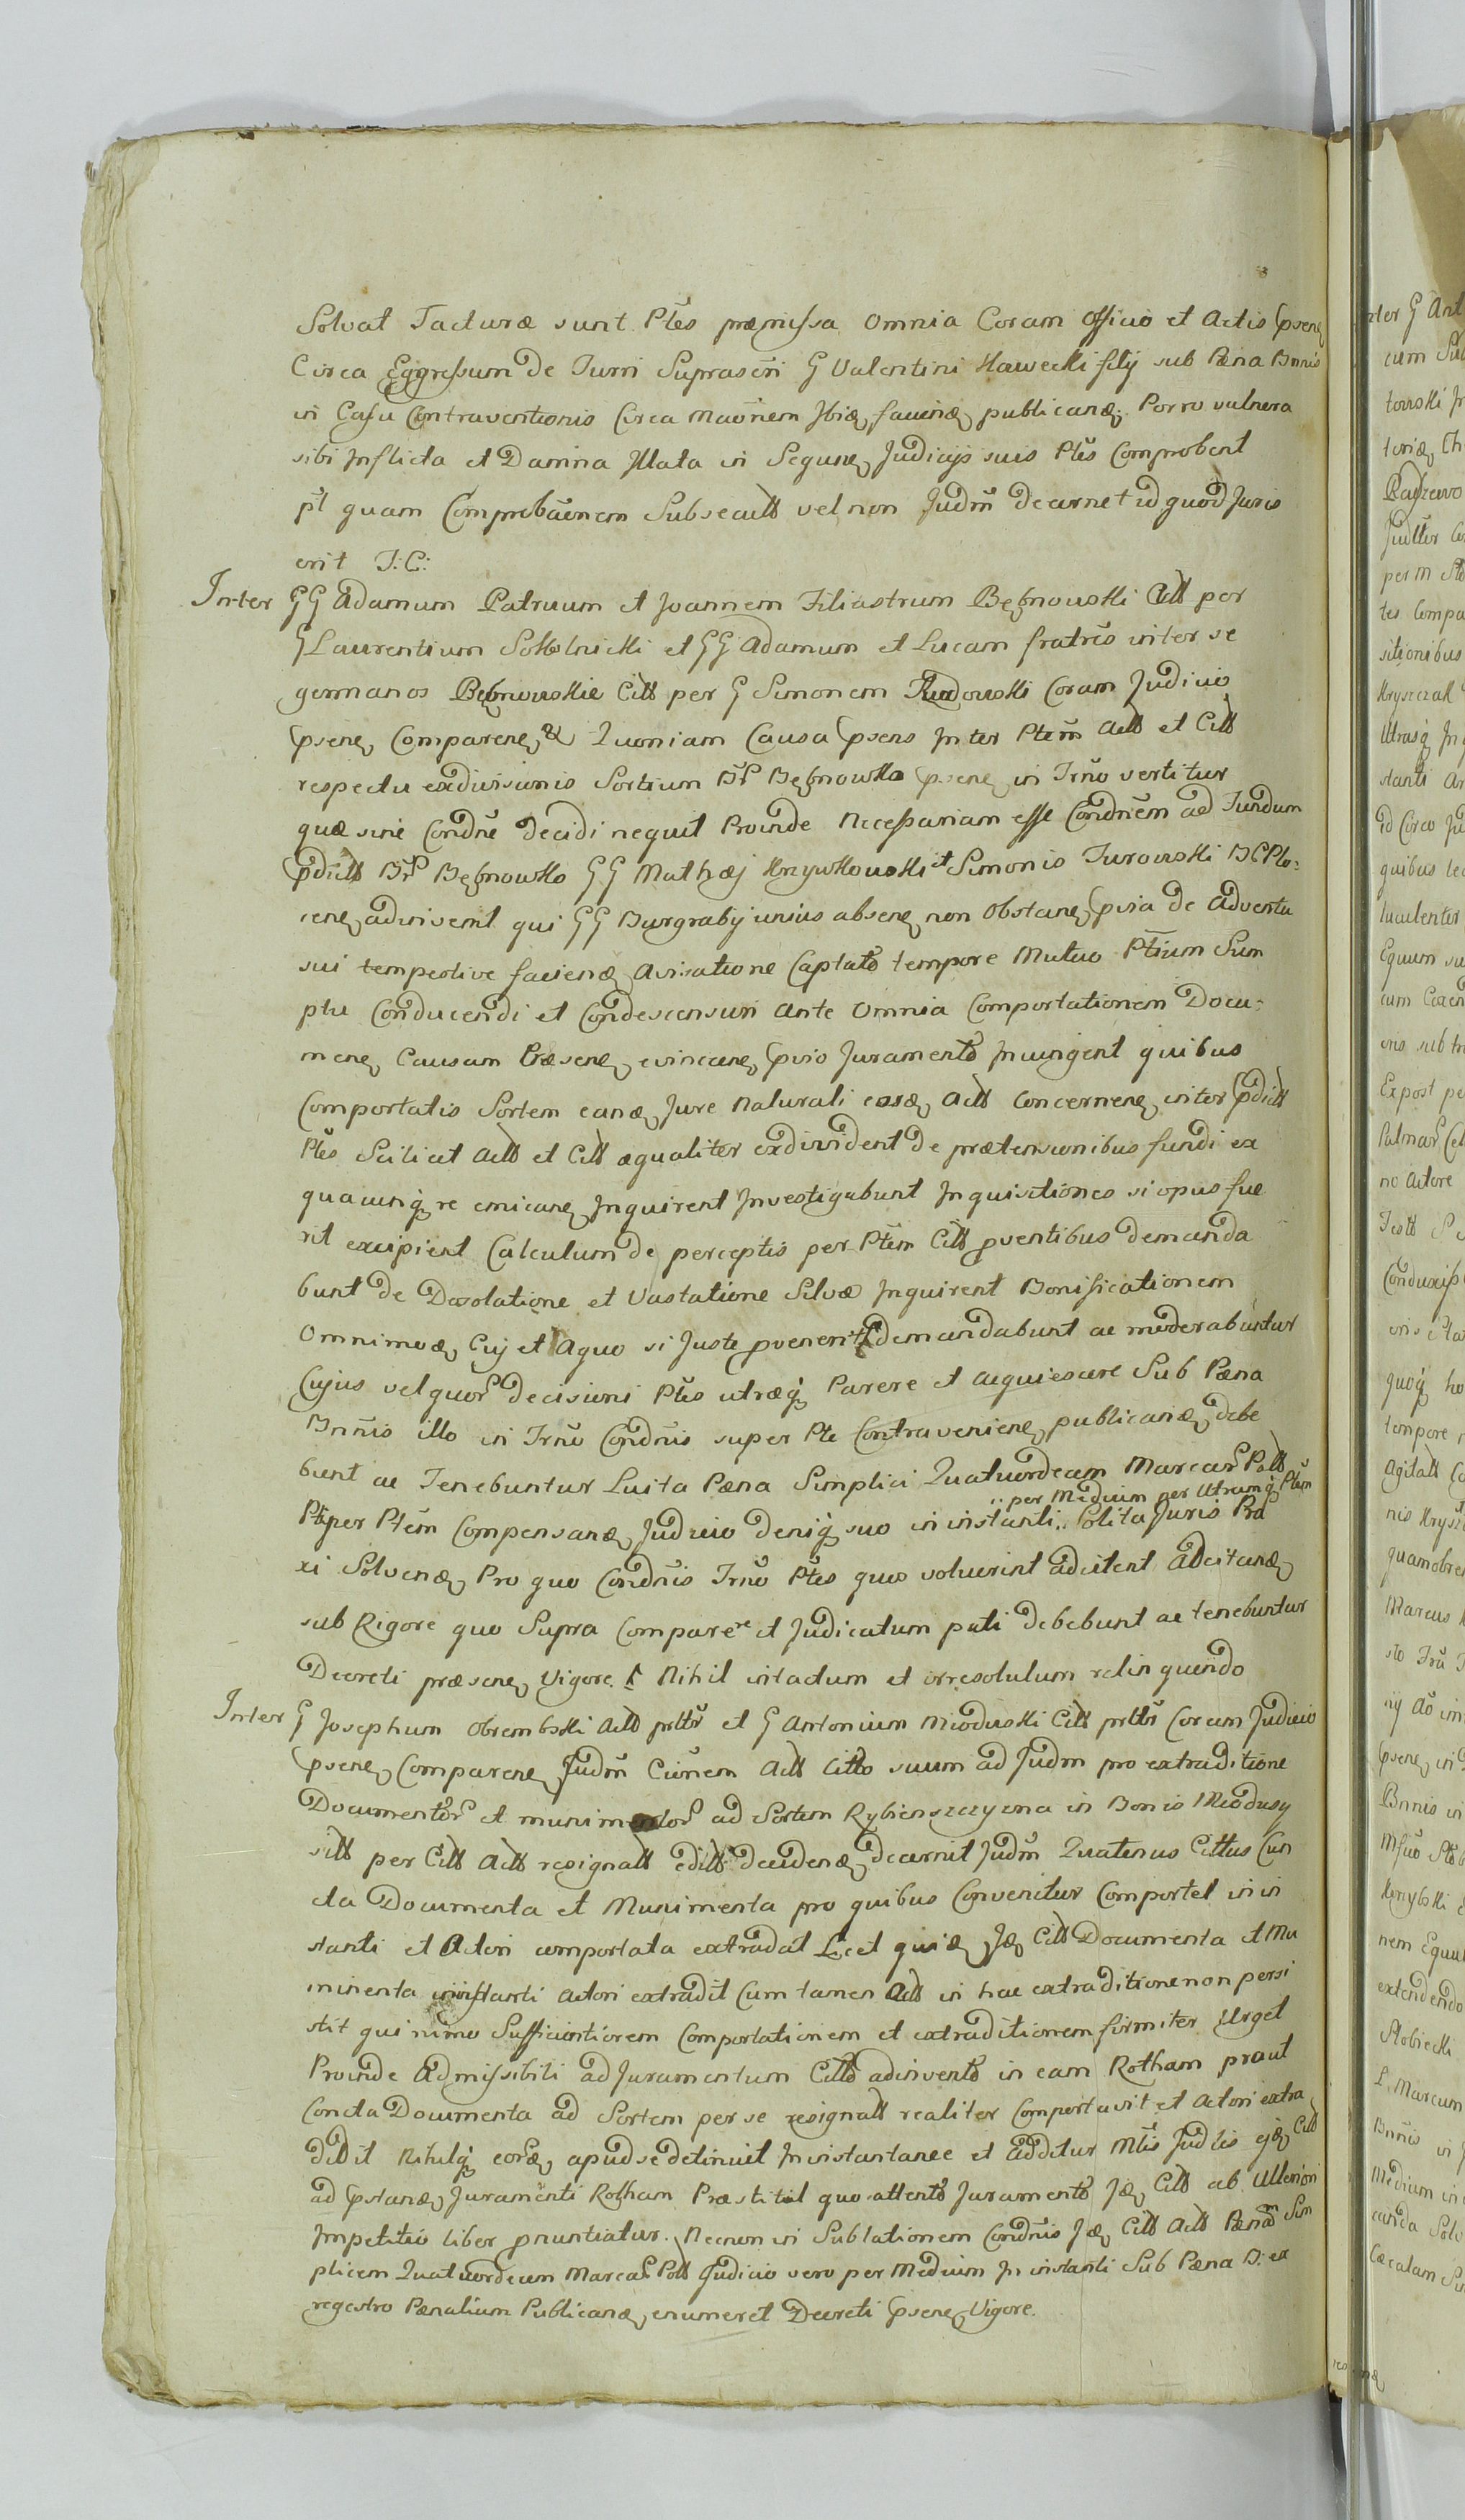 Solvat Facturæ sunt Ptes præmissa omnia Coram officio et Actis psene
Circa Egressum de Turri Suprascri G Valentini Hawecki filij sub Pæna Bnnis
in Casu Contraventionis Circa maonem Ibidę faciendę publicandę. Porro vulnera
sibi Inflicta et Damna Illata in Sequenę Judicijs suis Ptes Comprobent
pt quam Comprobãonem Subsecutt vel non Judm decernet id quod Juris
erit J: C:
Inter GG Adamum Patruum et Joannem Filiastrum Bębnowski Actt per
G Laurentium Sokolnicki et GG Adamum et Lucam fratres inter se
germanos Bębnowskie Citt per G Simonem Rudowski Coram Judicio
psenę Comparenę & Quoniam Causa psens Inter Ptem Actt et Citt
respectu exdivisionis Sortium Br Bębnowko psenę in Trno vertitur
quæ sine Condne decidi nequit Proinde Necessariam esse Condnem ad Fundum
pdictt Br Bębnowko GG Mathæj Krzywkowski et Simonis Turowski BCPlo:
cenę adinvenit qui GG Burgrabij unius absenę non obstanę pvia de adventu
sui tempestive facienę avisatione Captato tempore Mutuo Ptium Sum
ptu Conducendi et Condescensuri ante omnia Comportationem Docu:
menę Causam Præsenę evincenę pvio Juramento Injungent quibus
Comportatis Sortem eandę Jure Naturali eosdę Actt Concernenę inter pdictt
Ptes Scilicet Actt et Citt æqualiter exdivident de prætensionibus fundi ex
quacunq re emicanę Inquirent Investigabunt Inquisitiones si opus fue
rit excipient Calculum de perceptis per Ptem Citt pventibus demanda
bunt de Desolatione et Vastatione Silvæ Inquirent Bonificationem
Omnimodę Cuj et Aquo si Juste pvenerit demandabunt ac moderabuntur
Cujus vel quor decisioni Ptes utræq Parere et acquiescere Sub Pæna
Bnnis illo in Trno Condnis super Pte Contravenienę publicandę debe
bunt ac Tenebuntur Luita Pæna Simplici Quatuordecim Marcar Poll
Pti per Ptem Compensandę Judicio deniq suo in instanti .. per Medium per Utramq Ptem Solita Juris Pra
xi Solvendę Pro quo Condnis Trno Ptes quos voluerint adcitent Adcitandę
sub Rigore quo Supra Comparere et Judicatum pati debebunt ac tenebuntur
Decreti præsenę Vigore. Nihil intactum et irresolutum relinquendo
Inter G Josephum Obrembski Actt prttr et G Antonium Mioduski Citt prttr Coram Judicio
psenę Comparenę Judm Cionem Actt Citto suum ad Judm pro extraditione
Documentor et munimentor ad Sortem Rybienszczyzna in Bonis Miodusy
sitt per Citt Actt resignatt editt decidendę decernit Judm Quatenus Cittus Cun
cta Documenta et Munimenta pro quibus Convenitur Comportet in in
stanti et Actori comportata extradat Licet quidę Idę Citt Documenta et Mu
nimenta in instanti Actori extradit Cum tamen Actt in hac extraditione non persi
stit qui nimo Sufficientiorem Comportationem et extraditionem firmiter Urget
Proinde Admissibili ad Juramentum Citto adinvento in eam Rotham prout
Concta Documenta ad Sortem per se resignatt realiter Comportavit et Actori extra
didit Nihilq eordę apud se detinuit In instantanee et additur Mtis Judlis ejdę Citt
ad pstandę Juramenti Rotham Præstitit quo attento Juramento Idę Citt ab Ulteriori
Impetitio liber pnuntiatur. Necnon in Sublationem Condnis Idę Citt Actt Pænam Sim
plicem Quatuordecem Marcar Poll Judicio vero per Medium In instanti Sub Pæna B: ex
regestro Pænalium Publicandę enumeret Decreti psenę Vigore.